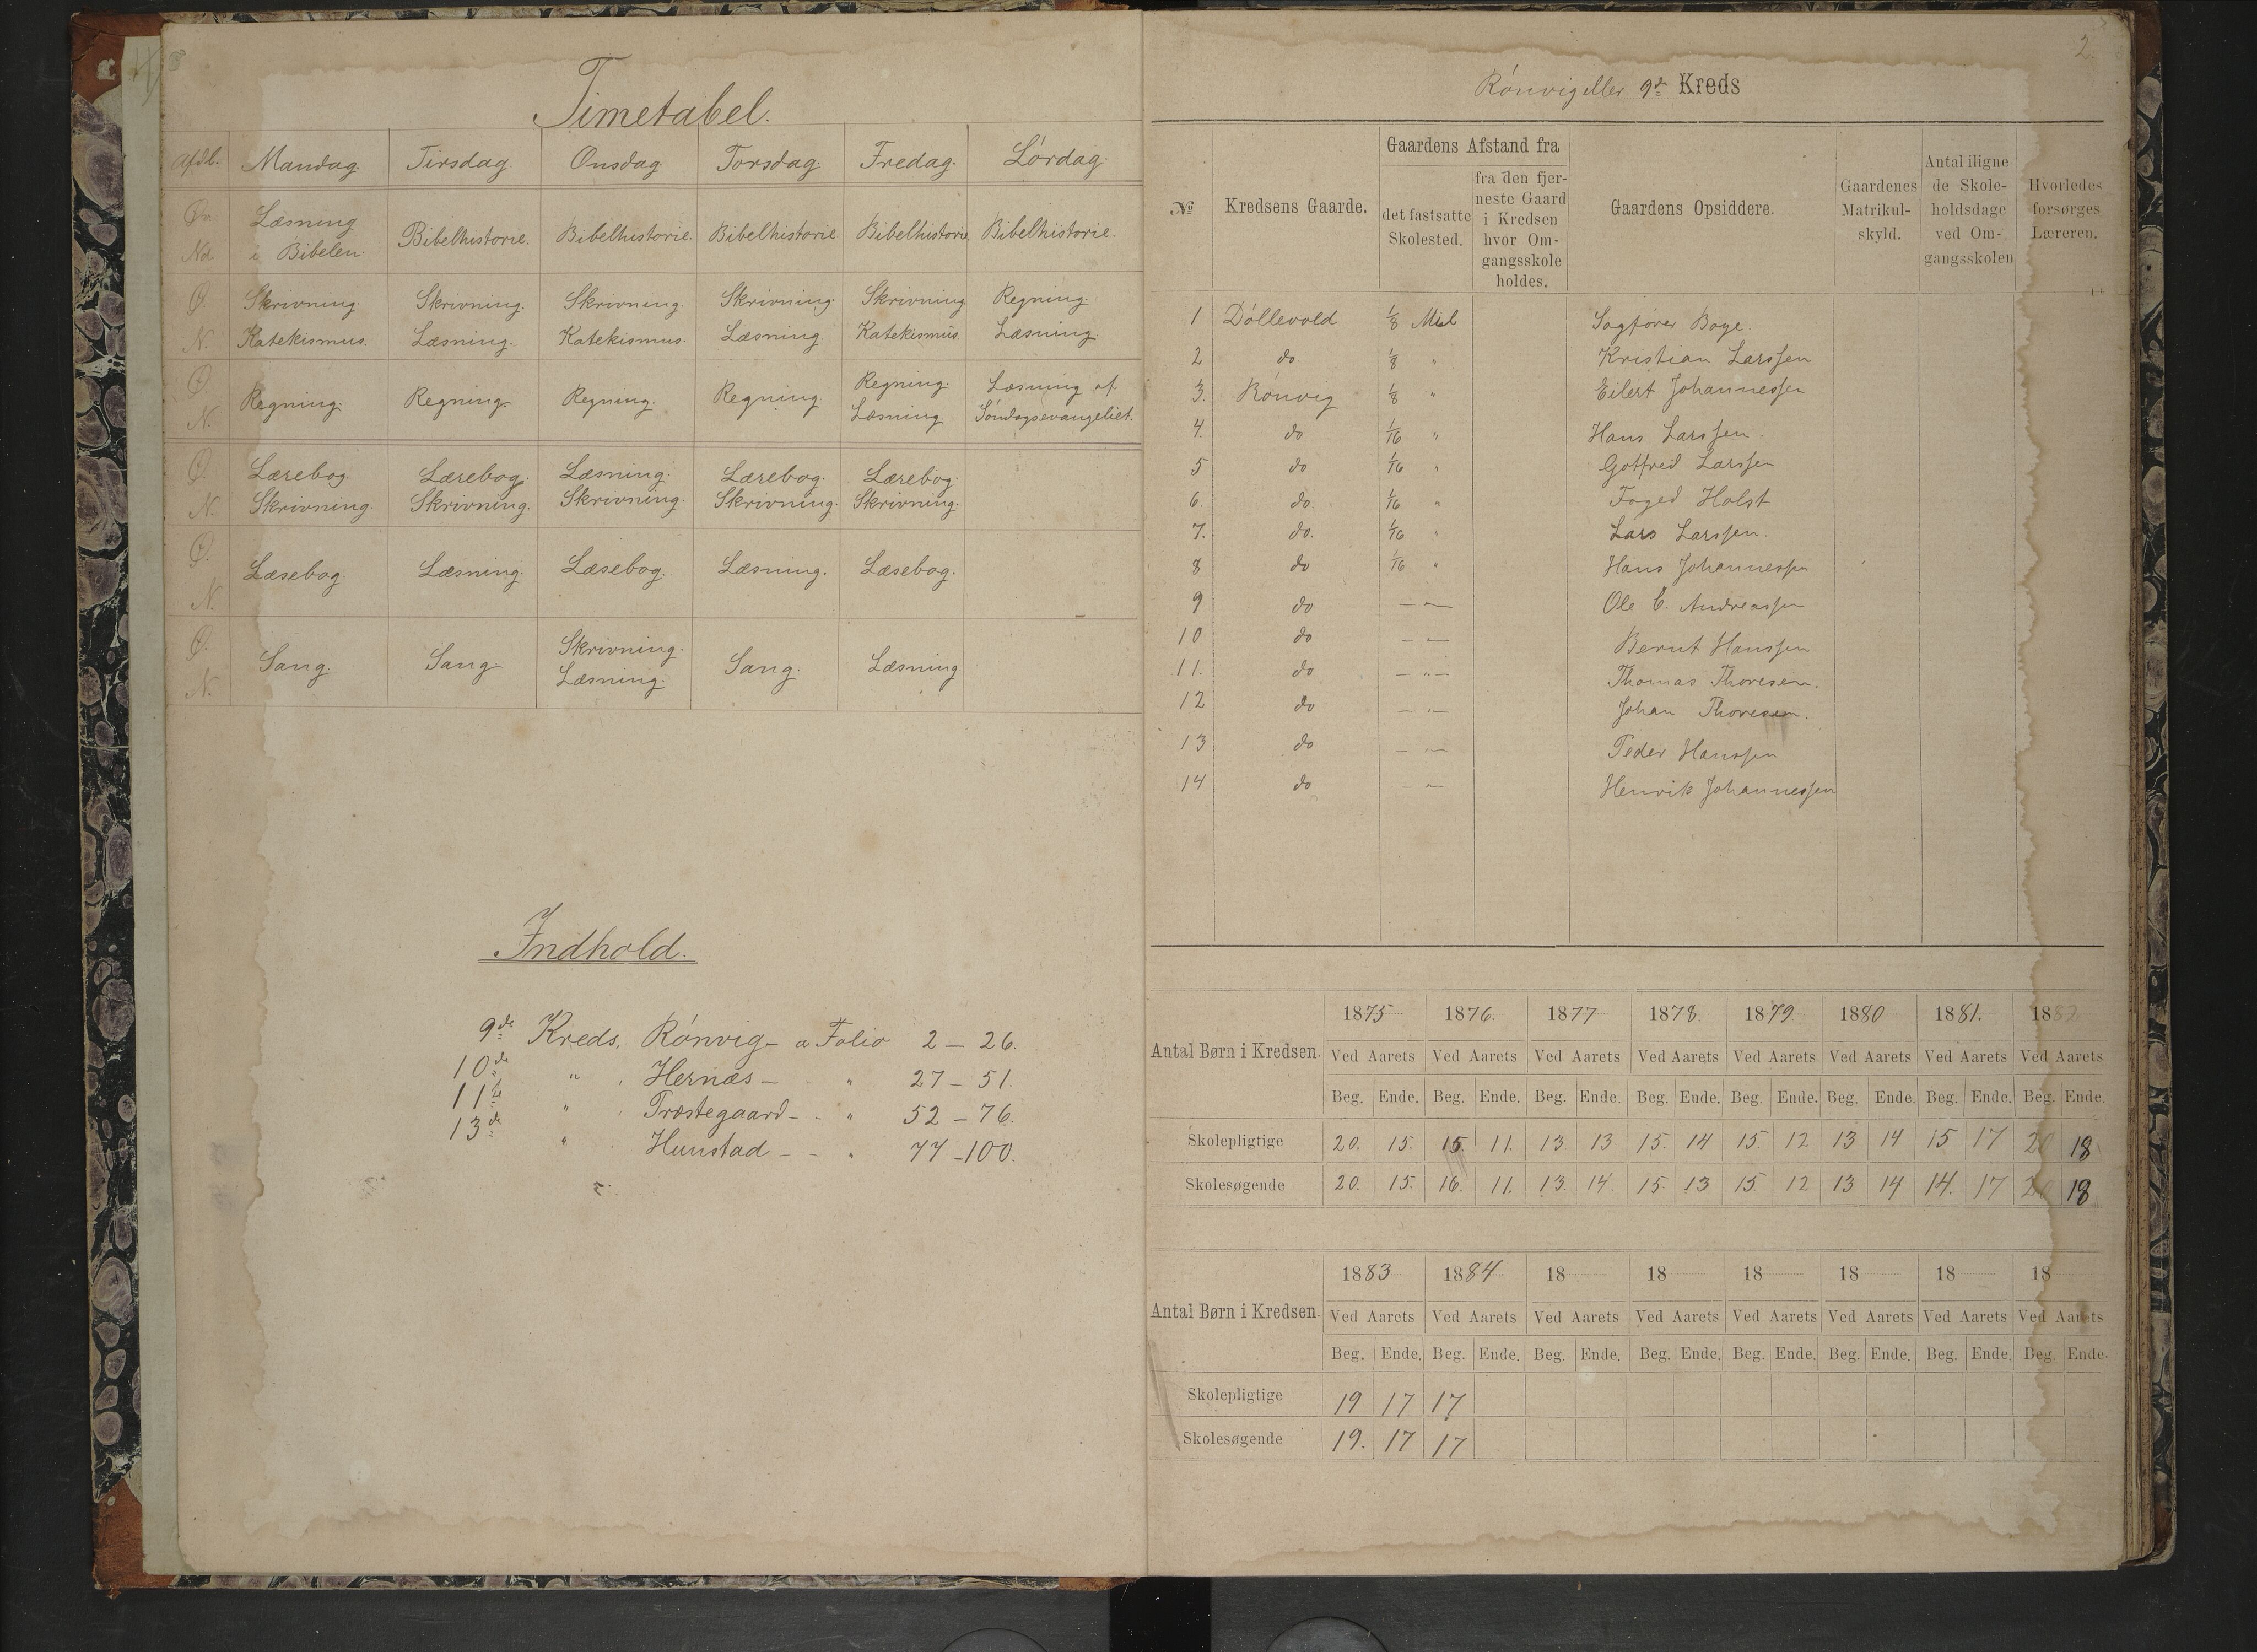 Timetabel.
Afdl. Mandag. Tirsdag. Onsdag Torsdag. Fredag. Lørdag.
Øv. Læsning
Nd. i Bibelen. Bibelhistorie. Bibelhistorie. Bibelhistorie. Bibelhistorie. Bibelhistorie.
Ø. Skrivning. Skrivning. Skrivning. Skrivning Skrivning Regning.
N. Katekismus. Læsning. Katekismus. Læsning. Katekismus. Læsning.
Ø. Regning. Regning. Regning. Regning Regning. Læsning af
N. Læsning Søndagsevangeliet.
Ø. Lærebog. Lærebog. Læsning. Lærebog. Lærebog.
N. Skrivning. Skrivning. Skrivning. Skrivning. Skrivning.
Ø. Læsebog. Læsning. Læsebog. Læsning. Læsebog.
N.
Ø. Sang. Sang. Skrivning. Sang. Læsning
N. Læsning.
Indhold.
9de Kreds, Rønvig - a Folio 2 - 26.
10de " Hernæs - " 27 - 51.
11te " Træstegaard - " 52 - 76.
13de " Hunstad - - " 77 - 100.
2.
Rønvig eller 9de Kreds
№ Kredsens Gaarde. Gaardens Afstand fra
det fastsatte Skolested.
fra den fjer-
neste Gaard
i Kredsen
hvor Om-
gangsskole
holdes.
Gaardens Opsiddere.
Gaardenes
Matrikul-
skyld.
Antal iligne
de Skole-
holdsdage
ved Om-
gangsskolen
Hvorledes
forsørges
Læreren.
1 Døllevold 1/8 Mil Sagfører Boye.
2 do. 1/8 " Kristian Larssen
3. Rønvig 1/8 " Eilert Johannessen
4. do 1/16 " Hans Larssen.
5 do 1/16 " Gotfred Larssen
6. do. 1/16 " Foged Holst
7. do. 1/16 " Lars Larssen.
8 do 1/16 " Hans Johannessen
9 do - " - Ole C. Andreassen
10 do - " - Bernt Hanssen
11. do - " - Thomas Thoresen.
12 do - " - Johan Thoresen.
13 do - " - Peder Hanssen
14 do - " - Henrik Johannessen
Antal Børn i Kredsen. 1875 1876. 1877 1878. 1879. 1880 1881. 1882
Ved Aarets Ved Aarets Ved Aarets Ved Aarets Ved Aarets Ved Aarets Ved Aarets Ved Aarets
Beg. Ende. Beg. Ende. Beg. Ende. Beg. Ende. Beg. Ende. Beg. Ende. Beg. Ende. Beg. Ende.
Skolepligtige 20. 15. 15. 11. 13. 13. 15. 14 15. 12 13 14 15 17 20 18
Skolesøgende 20. 15. 16. 11. 13. 14. 15. 13 15. 12 13 14 14. 17 20 18
Antal Børn i Kredsen. 1883 1884 18 18 18 18 18 18
Ved Aarets Ved Aarets Ved Aarets Ved Aarets Ved Aarets Ved Aarets Ved Aarets Ved Aarets
Beg. Ende. Beg. Ende. Beg. Ende. Beg. Ende. Beg. Ende. Beg. Ende. Beg. Ende. Beg. Ende.
Skolepligtige 19 17 17
Skolesøgende 19. 17 17